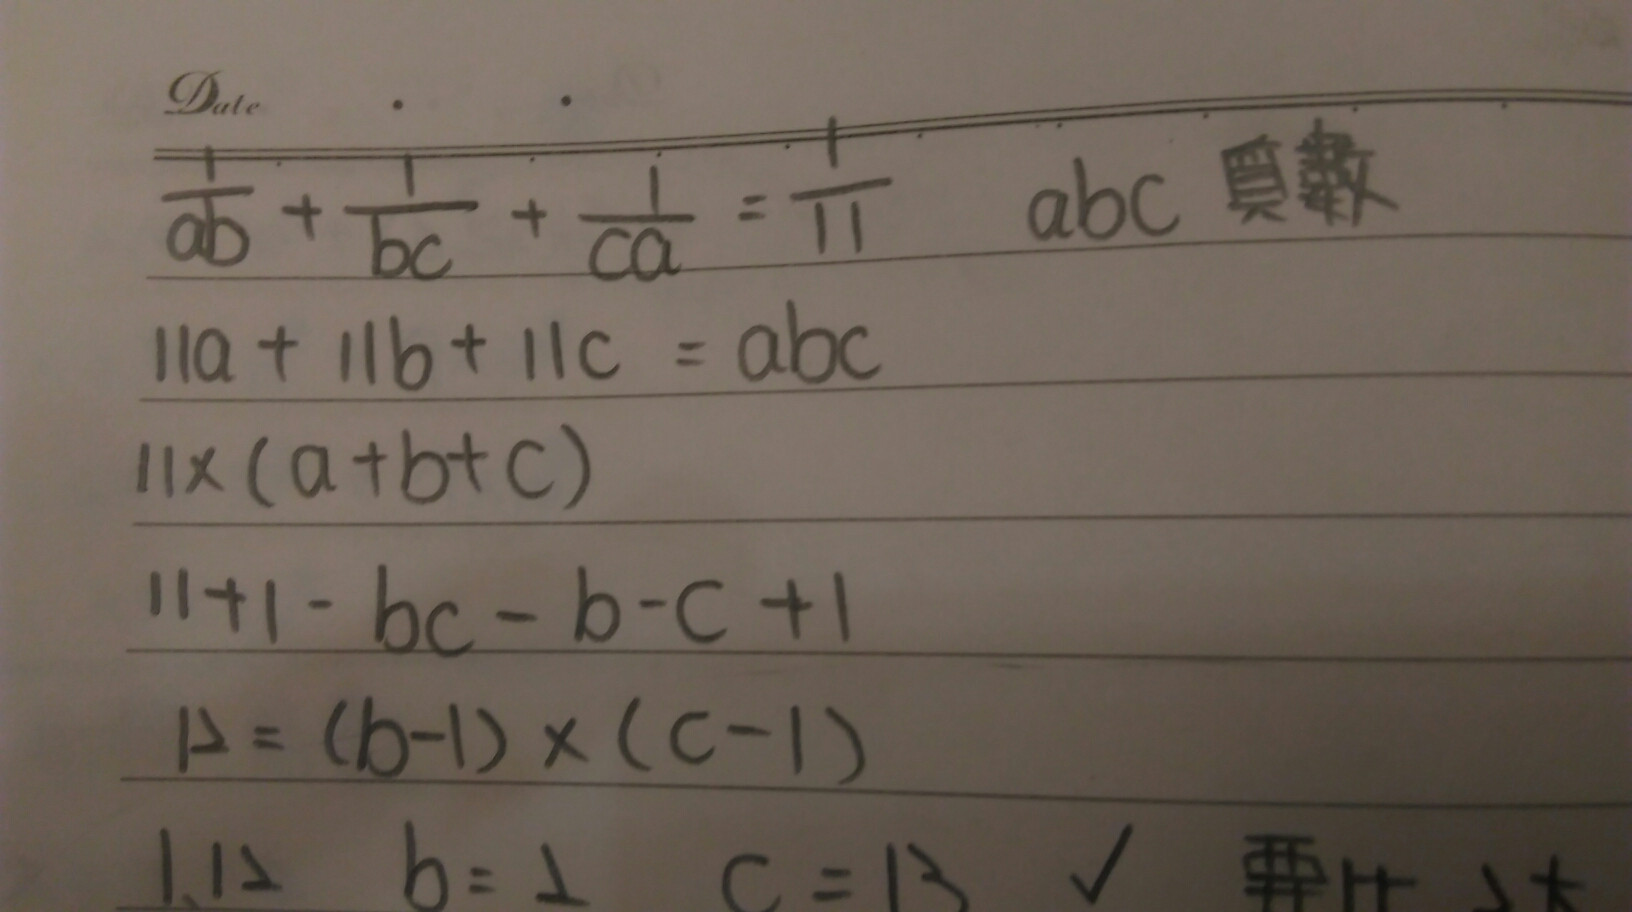 Date
1/ab + 1/bc + 1/ca = 1/11 abc 質數
11a + 11b + 11c = abc
11x(a+b+c)
11+1- bc - b-c +1
12 = (b-1) x (c-1)
1.12 b=2 c=13 ✓